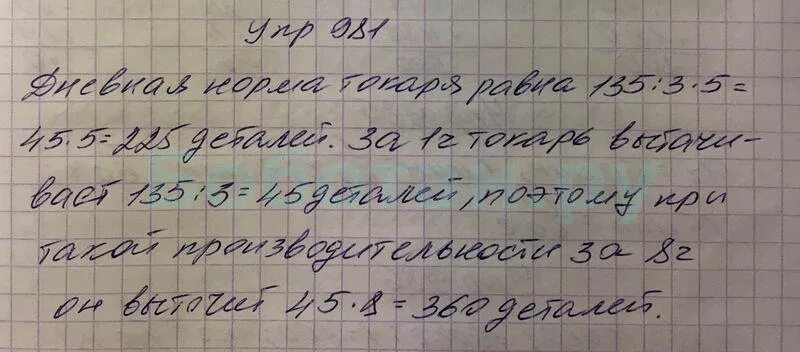 Упр 981
Дневная норма токаря равна 135:3·5=
45·5=225 деталей. За 1ч токарь вытачи-
вает 135:3=45 деталей, поэтому при
такой производительности за 8ч
он выточит 45·8=360 деталей.